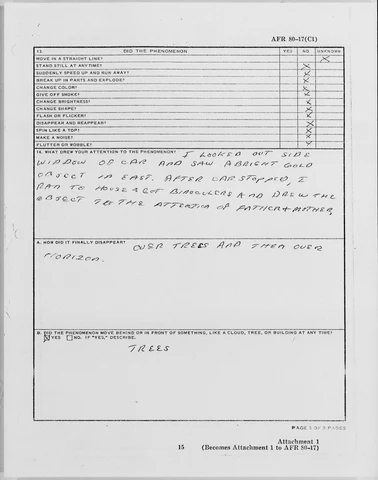 AFR 80-17(C1)
13. DID THE PHENOMENON YES NO UNKNOWN
MOVE IN A STRAIGHT LINE? X
STAND STILL AT ANYTIME? X
SUDDENLY SPEED UP AND RUN AWAY? X
BREAK UP IN PARTS AND EXPLODE? X
CHANGE COLOR? X
GIVE OFF SMOKE? X
CHANGE BRIGHTNESS? X
CHANGE SHAPE? X
FLASH OR FLICKER? X
DISAPPEAR AND REAPPEAR? X
SPIN LIKE A TOP? X
MAKE A NOISE? X
FLUTTER OR WOBBLE? X
14. WHAT DREW YOUR ATTENTION TO THE PHENOMENON? I LOOKED OUT SIDE
WINDOW OF CAR AND SAW A BRIGHT GOLD
OBJECT IN EAST. AFTER CAR STOPPED, I
RAN TO HOUSE & GOT BINOCULERS AND DREW THE
OBJECT TO THE ATTENTION OF FATHER & MOTHER.
A. HOW DID IT FINALLY DISAPPEAR? OVER TREES AND THEN OVER
HORIZON.
B. DID THE PHENOMENON MOVE BEHIND OR IN FRONT OF SOMETHING, LIKE A CLOUD, TREE, OR BUILDING AT ANY TIME?
X YES NO. IF "YES," DESCRIBE.
TREES
PAGE 5 OF PAGES
Attachment 1
15 (Becomes Attachment 1 to AFR 80-17)